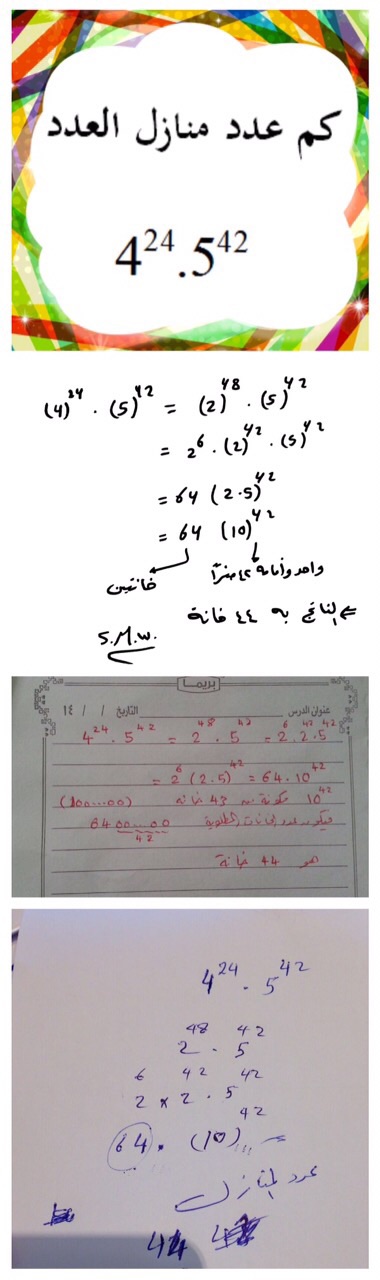 كم عدد منازل العدد
4^24 . 5^42
(4)^24 . (5)^42 = (2)^48 . (5)^42
= 2^6 . (2)^42 . (5)^42
= 64 (2.5)^42
= 64 (10)^42
واحد وأمامه ٤٢ صفرًا
خانتين
⇐ الناتج به ٤٤ خانة
S.M.W.
بريما
عنوان الدرس التاريخ / / ١٤
4^24 . 5^42 = 2^48 . 5^42 = 2^6 . 2^42 . 5^42
= 2^6 (2.5)^42 = 64 . 10^42
10^42 مكونة من 43 خانة (100......00)
فيكون عدد الخانات المطلوبة 6400......00
42
هو 44 خانة
4^24 . 5^42
2^48 . 5^42
2^6 × 2^42 . 5^42
64 . (10)^42
عدد المنازل
44